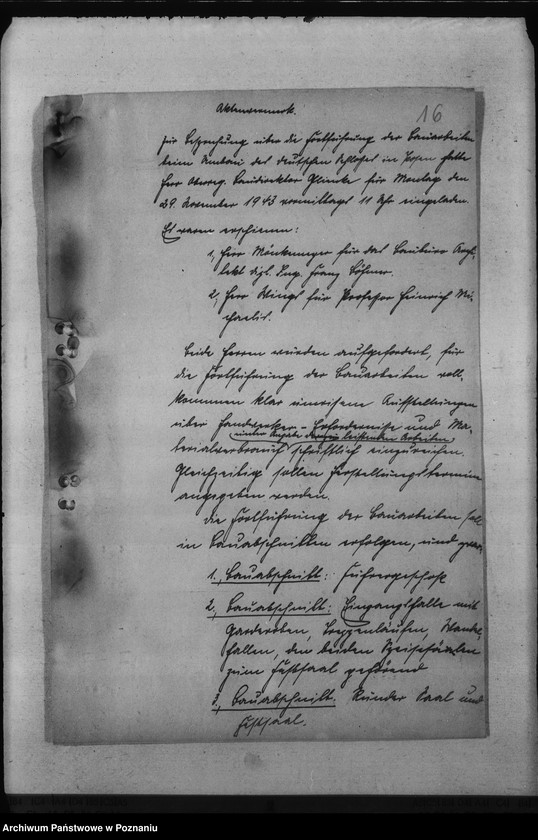 16
Aktenvermerk.
Zur Besprechung über die Fortführung der Bauarbeiten
beim Umbau des deutschen Schlosses in Posen hatte
Herr Oberreg. Baudirektor Glincke für Montag den
29. November 1943 vormittags 11 Uhr eingeladen.
Es waren erschienen:
1, Herr Mönkemeyer für das Baubüro Archi-
tekt dipl. Ing. Franz Böhmer.
2, Herr Wings für Professor Heinrich Mi-
chaelis.
Beide Herren wurden aufgefordert, für
die Fortführung der Bauarbeiten voll-
kommen klar umrissene Aufstellungen
über Handwerker-Erfordernisse und Ma-
(unter Angabe der zu leistenden Arbeiten)
terialverbrauch schriftlich einzureichen.
Gleichzeitig sollen Herstellungstermine
angegeben werden.
Die Fortführung der Bauarbeiten soll
in Bauabschnitten erfolgen, und zwar:
1., Bauabschnitt: Führergeschoß
2., Bauabschnitt: Eingangshalle mit
Garderoben, Treppenläufen, Wandel-
hallen, den beiden Speisesälen
zum Festsaal gehörend
3., Bauabschnitt. Runder Saal und
Festsaal.
Archiwum Państwowe w Poznaniu